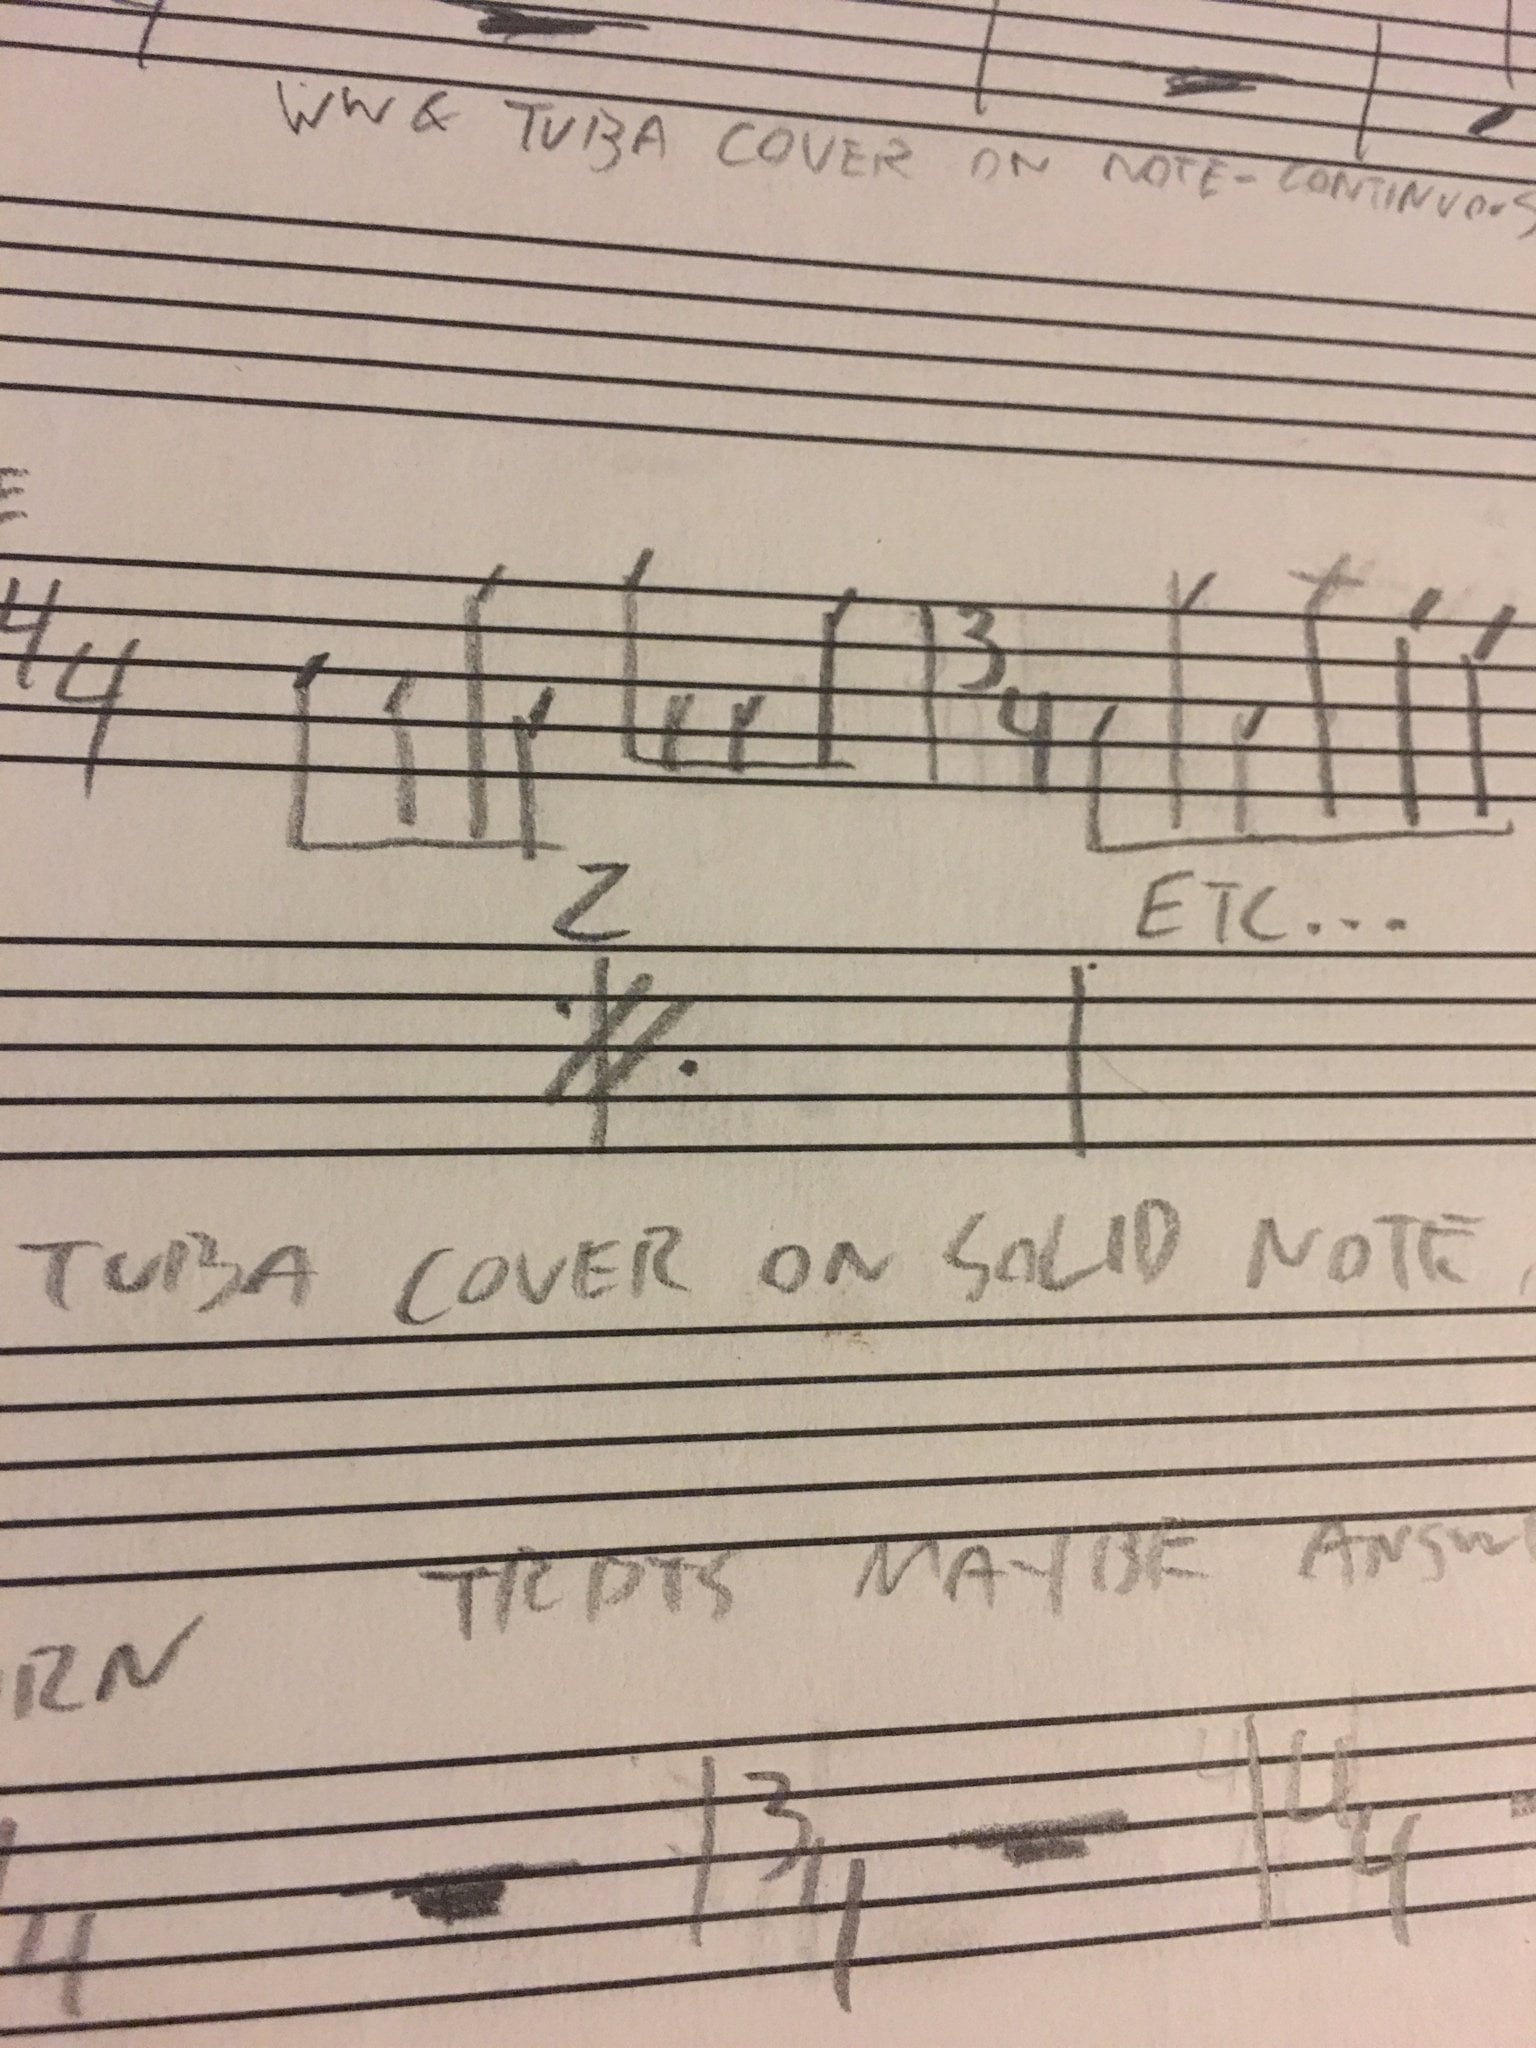 WW & TUBA COVER ON NOTE - CONTINUOUS
E
4 4 3 4
2
ETC...
TUBA COVER ON SOLID NOTE
TRPTS MAYBE
RN
4 3 4 4 4